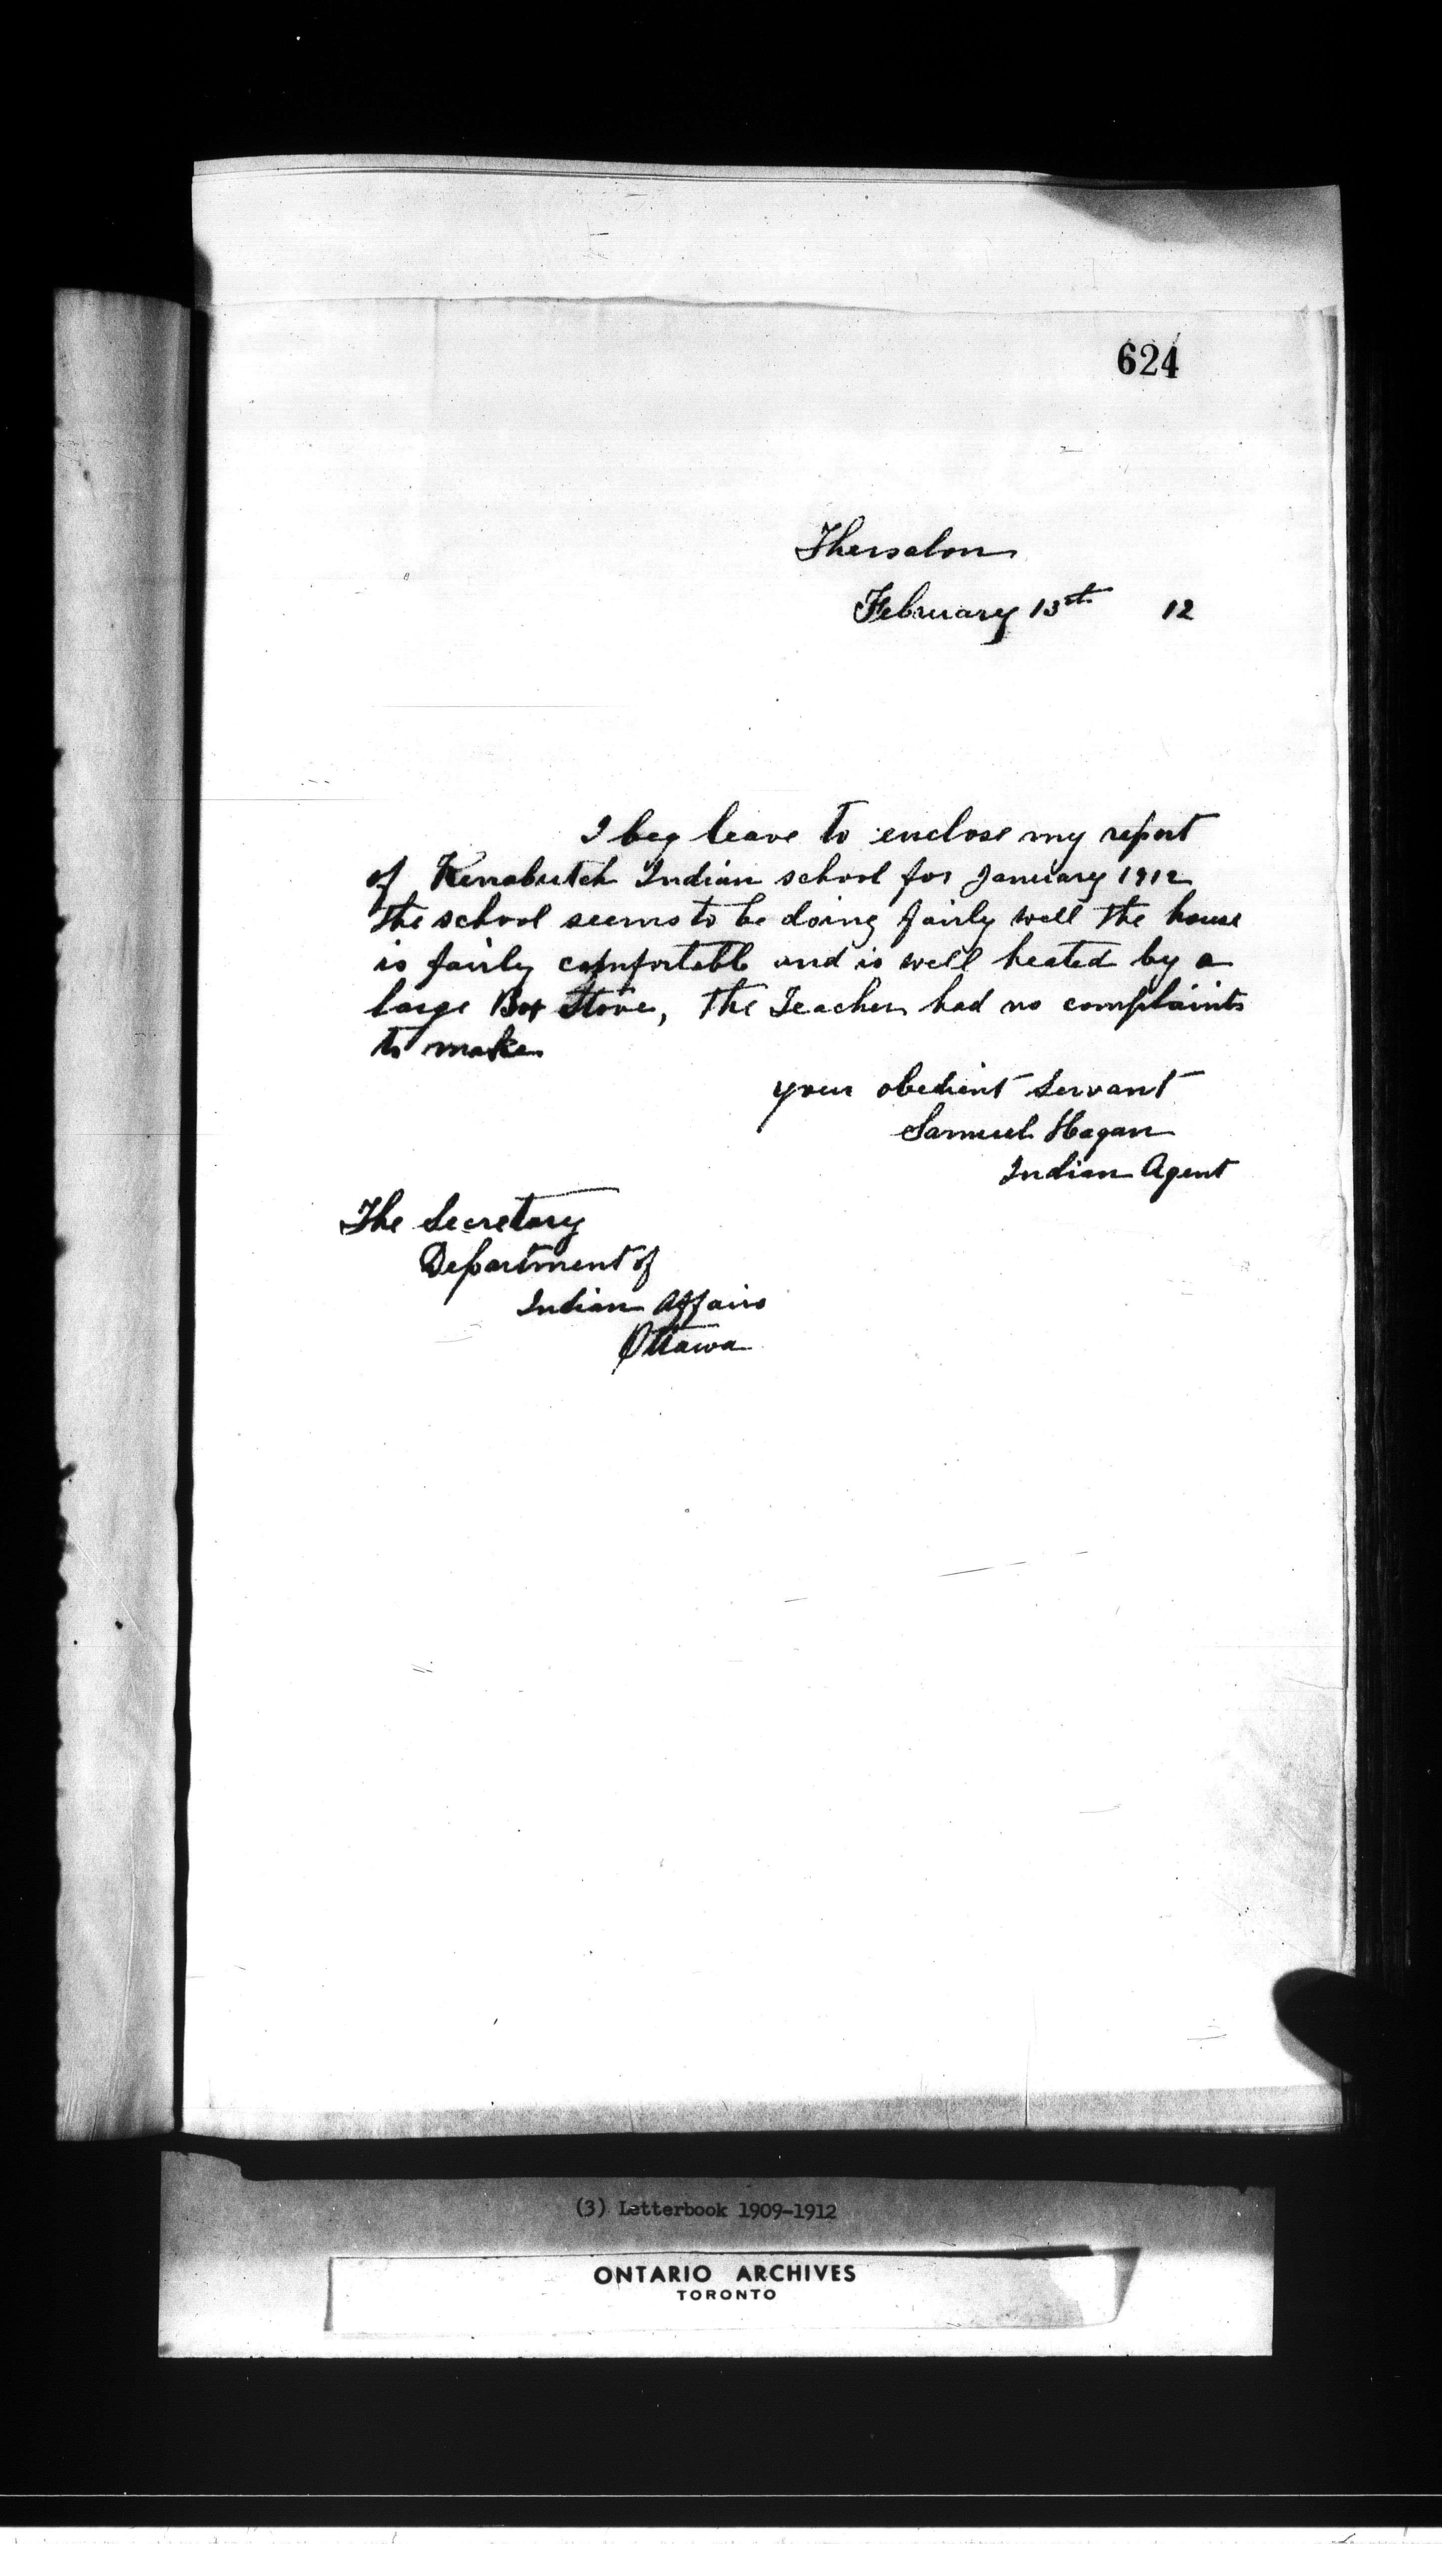 624
Thessalon
February 13th 12
I beg leave to enclose my report
of Kenabutch Indian school for January 1912
the school seems to be doing fairly well the house
is fairly comfortable and is well heated by a
large Box Stove, the Teacher had no complaints
to make
your obedient servant
Samuel Hagan
Indian Agent
The Secretary
Department of
Indian Affairs
Ottawa
(3) Letterbook 1909-1912
ONTARIO ARCHIVES
TORONTO